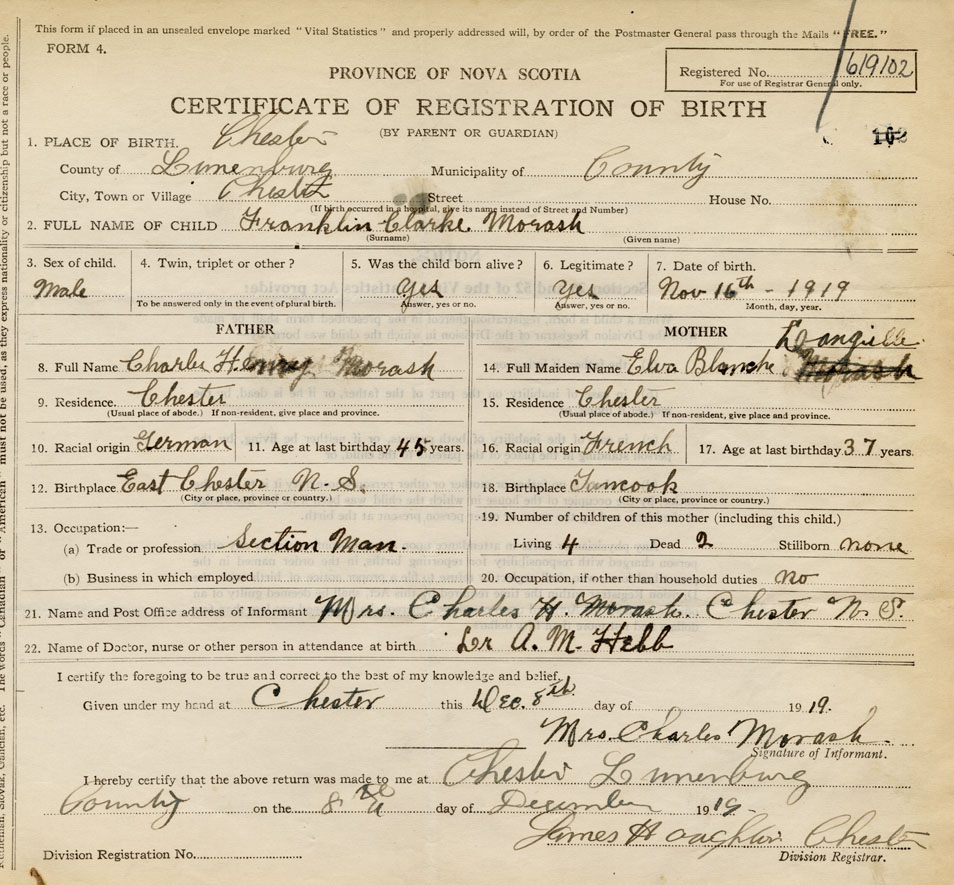 This form if placed in an unsealed envelope marked "Vital Statistics" and properly addressed will, by order of the Postmaster General pass through the Mails "FREE."
FORM 4.
Registered No. 61902
For use of Registrar General only.
PROVINCE OF NOVA SCOTIA
CERTIFICATE OF REGISTRATION OF BIRTH
(BY PARENT OR GUARDIAN)
102
1. PLACE OF BIRTH. Chester
County of Lunenburg Municipality of County
City, Town or Village Chester Street House No.
(If birth occurred in a hospital, give its name instead of Street and Number)
2. FULL NAME OF CHILD Franklin Clarke Morash
(Surname) (Given name)
3. Sex of child. 4. Twin, triplet or other? 5. Was the child born alive? 6. Legitimate? 7. Date of birth.
Male Yes Yes Nov 16th - 1919
To be answered only in the event of plural birth. Answer, yes or no. Answer, yes or no. Month, day, year.
FATHER MOTHER
8. Full Name Charles Henry Morash 14. Full Maiden Name Elva Blanche Morash Langille
9. Residence Chester 15. Residence Chester
(Usual place of abode.) If non-resident, give place and province. (Usual place of abode.) If non-resident, give place and province.
10. Racial origin German 11. Age at last birthday 45 years. 16. Racial origin French 17. Age at last birthday 37 years.
12. Birthplace East Chester N. S. 18. Birthplace Tancook
(City or place, province or country.) (City or place, province or country.)
13. Occupation:— 19. Number of children of this mother (including this child.)
(a) Trade or profession Section Man. Living 4 Dead 2 Stillborn none
(b) Business in which employed 20. Occupation, if other than household duties no
21. Name and Post Office address of Informant Mrs. Charles H. Morash. Chester N. S.
22. Name of Doctor, nurse or other person in attendance at birth Dr A. M. Hebb
I certify the foregoing to be true and correct to the best of my knowledge and belief.
Given under my hand at Chester this Dec. 8th day of 1919.
Mrs. Charles Morash.
Signature of Informant.
I hereby certify that the above return was made to me at Chester Lunenburg
County on the 8th day of December 1919
James H Chester
Division Registration No. Division Registrar.
The words "Canadian" or "American" must not be used, as they express nationality or citizenship but not a race or people.